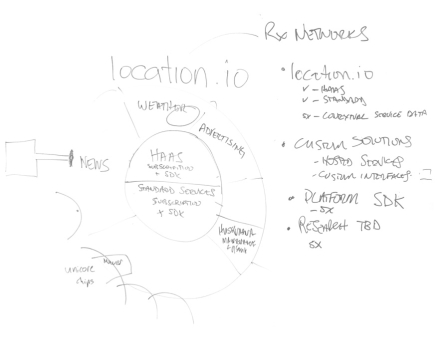 Rx NETWORKS
location.io
WEATHER
ADVERTISING
NEWS
HAAS
SUBSCRIPTION
+ SDK
STANDARD SERVICES
SUBSCRIPTION
+ SDK
uncore
chips
• location.io
✓ - HAAS
✓ - STANDARD
5x - CONTEXTUAL SERVICE DATA
• CUSTOM SOLUTIONS
- HOSTED SERVICES
- CUSTOM INTERFACES
• PLATFORM SDK
- 5X
• RESEARCH TBD
5X